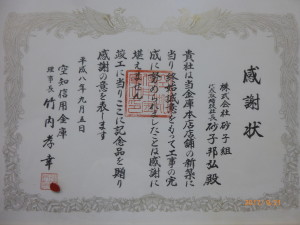 感謝状
株式会社 砂子組
代表取締役社長 砂子邦弘殿
貴社は当金庫本店店舗の新築に
当り終始誠意をもって工事の完
成に努められましたことは感謝に
堪えません
竣工に当りここに記念品を贈り
感謝の意を表します
平成八年九月五日
空知信用金庫
理事長 竹内孝幸